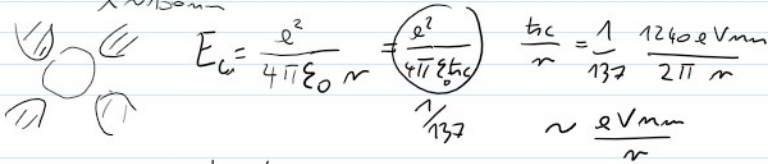 λ ~ 130nm
E_c = e² / 4πε₀ r = e² / 4πε₀ħc ħc / r = 1 / 137 1240 eV nm / 2π r
1/137 ~ eV nm / r